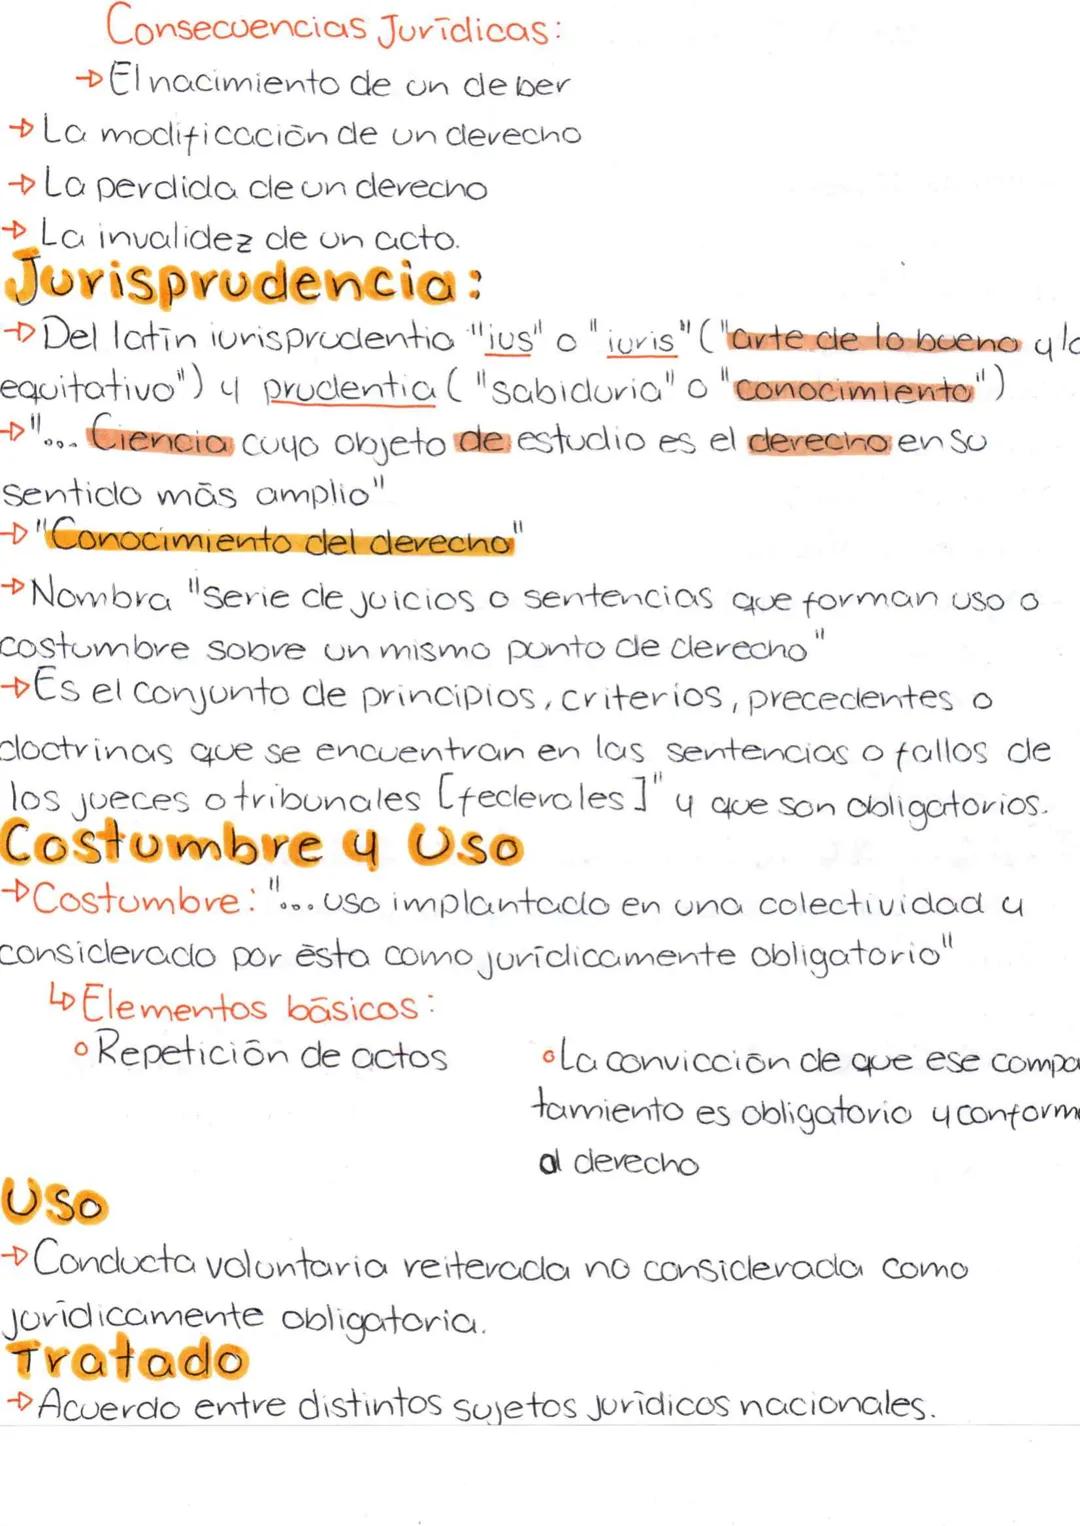 Consecuencias Jurídicas:
→ El nacimiento de un deber
→ La modificación de un derecho
→ La perdida de un derecho
→ La invalidez de un acto.
Jurisprudencia:
→ Del latín iurisprudentia "ius" o "iuris" ("arte de lo bueno y lo
equitativo") y prudentia ("sabiduria" o "conocimiento")
→ "... Ciencia cuyo objeto de estudio es el derecho en su
sentido más amplio"
→ "Conocimiento del derecho"
→ Nombra "serie de juicios o sentencias que forman uso o
costumbre sobre un mismo punto de derecho"
→ Es el conjunto de principios, criterios, precedentes o
doctrinas que se encuentran en las sentencias o fallos de
los jueces o tribunales [federales]" y que son obligatorios.
Costumbre y Uso
→ Costumbre: "... uso implantado en una colectividad y
considerado por ésta como jurídicamente obligatorio"
↳ Elementos básicos:
° Repetición de actos
° La convicción de que ese compor
tamiento es obligatorio y conforme
al derecho
Uso
→ Conducta voluntaria reiterada no considerada como
jurídicamente obligatoria.
Tratado
→ Acuerdo entre distintos sujetos jurídicos nacionales.